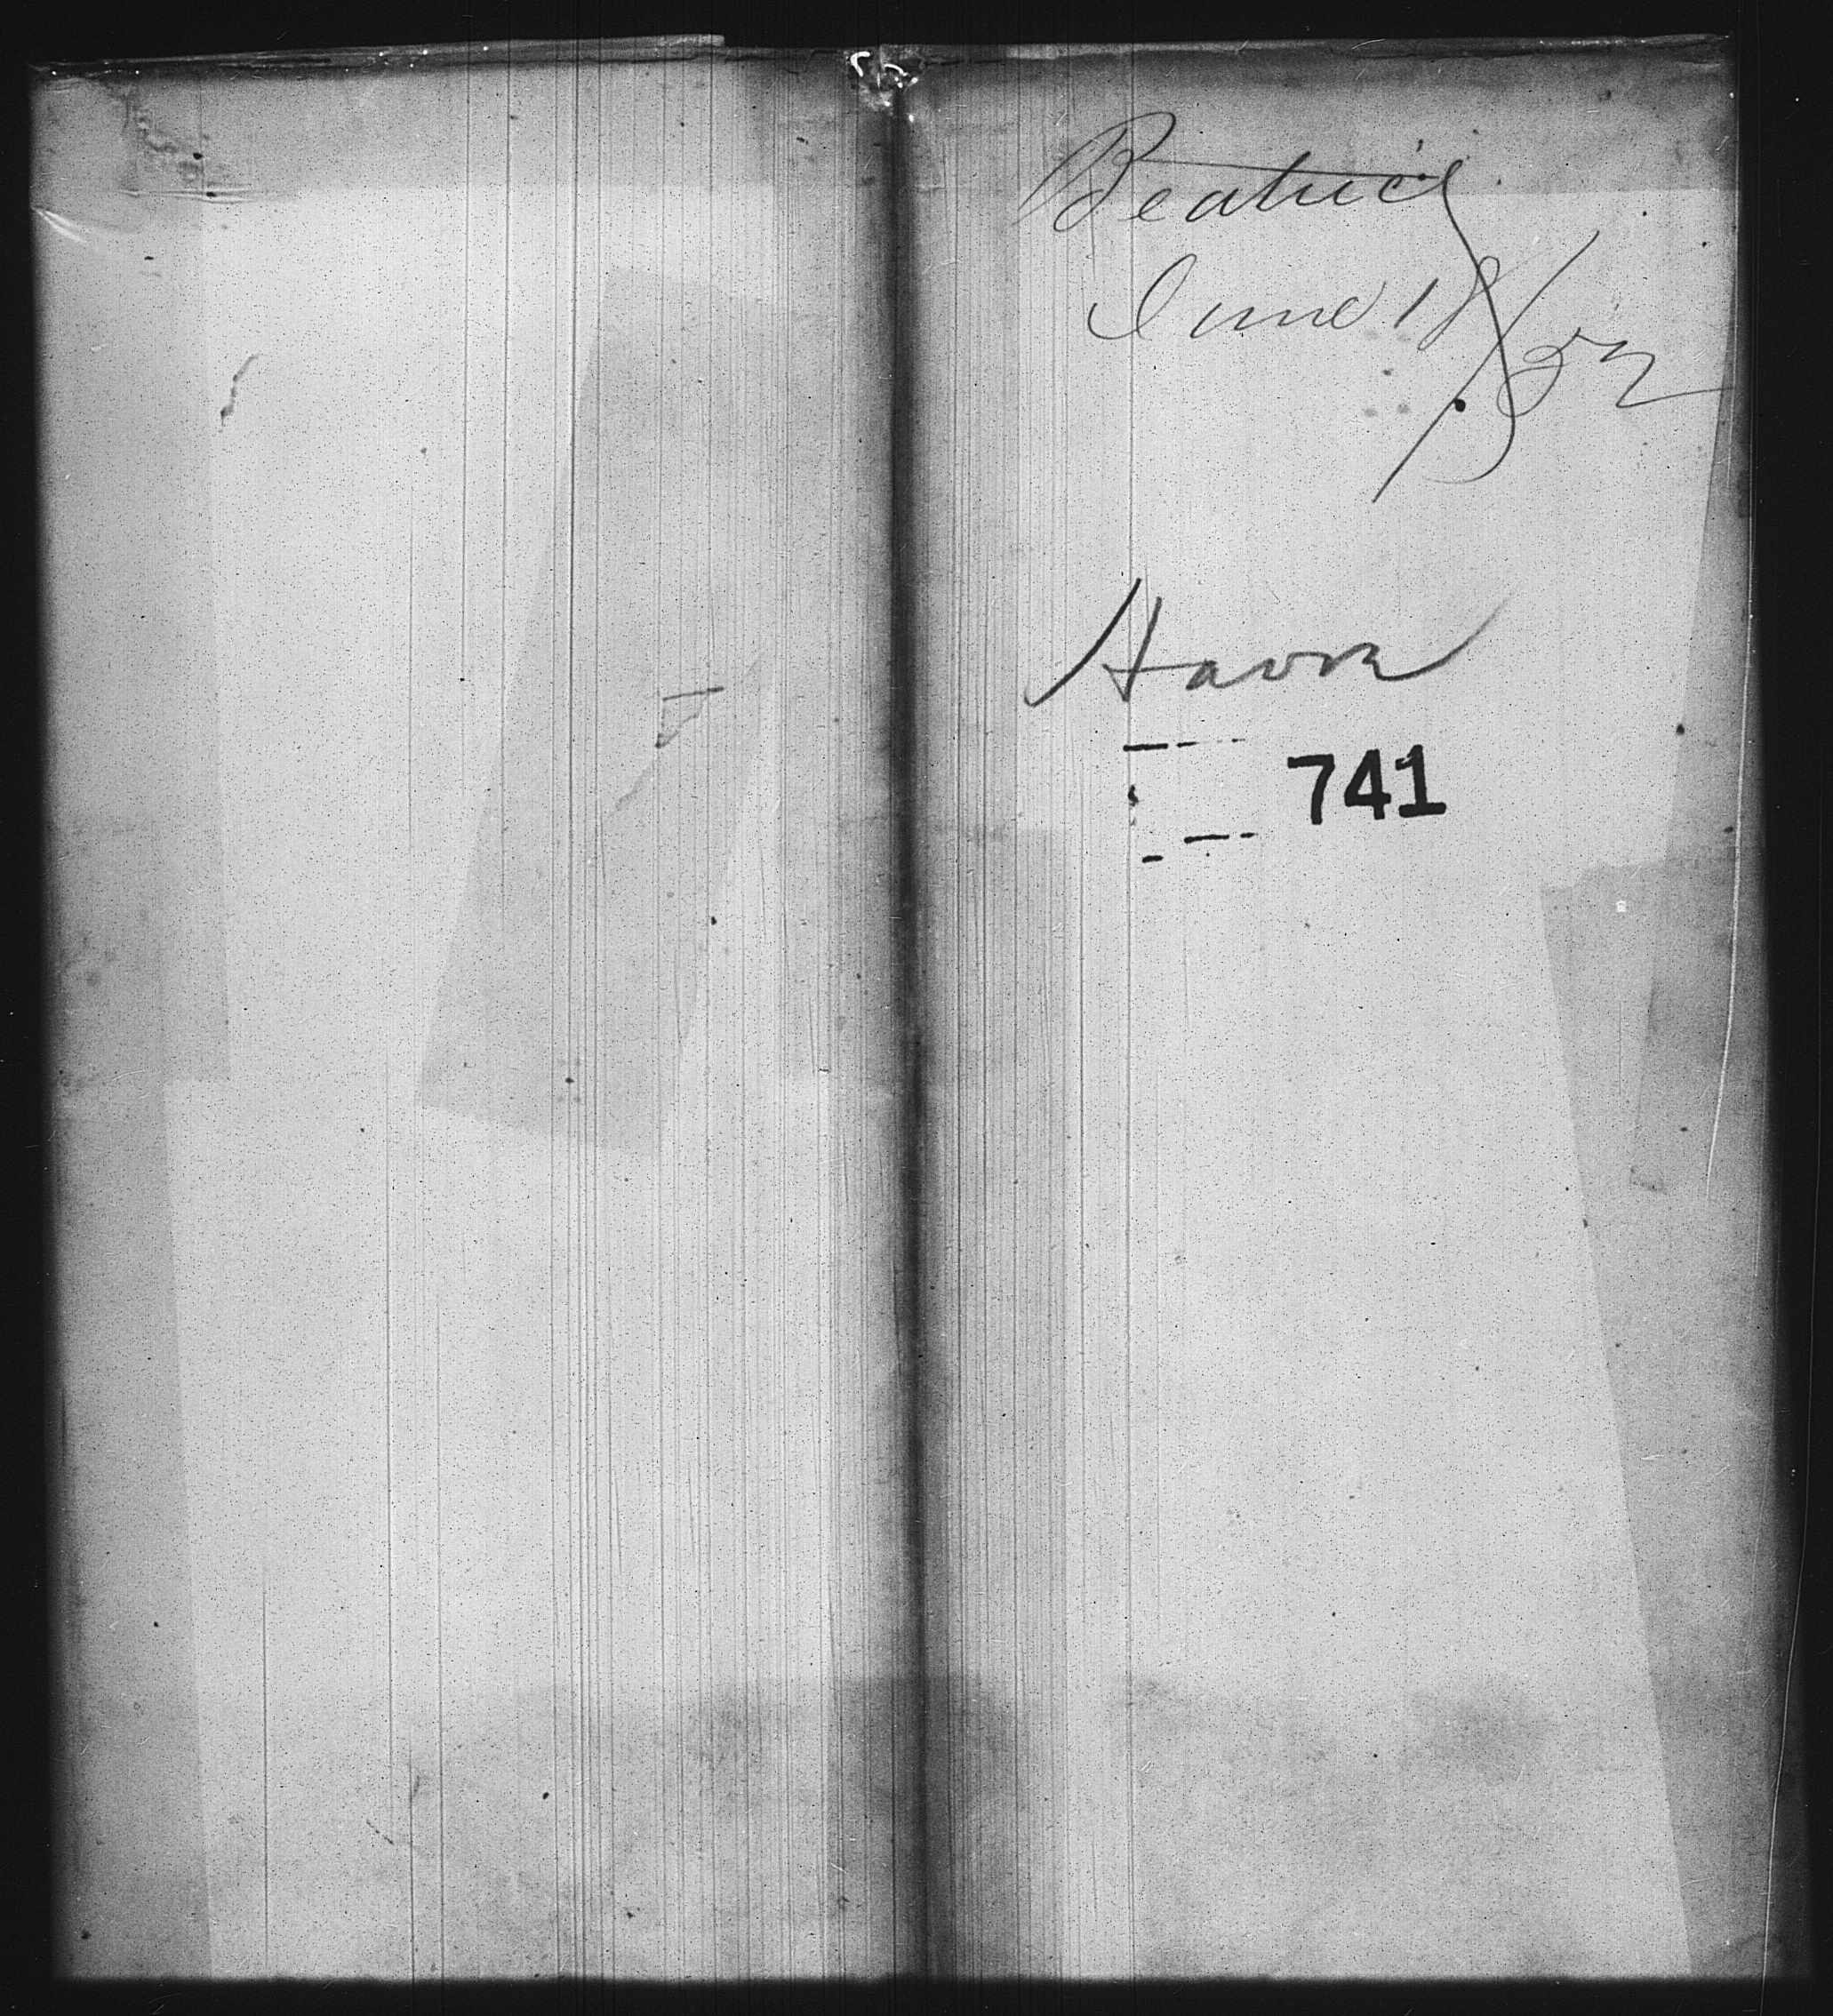 Beatrice
June 18/52
Havra
741